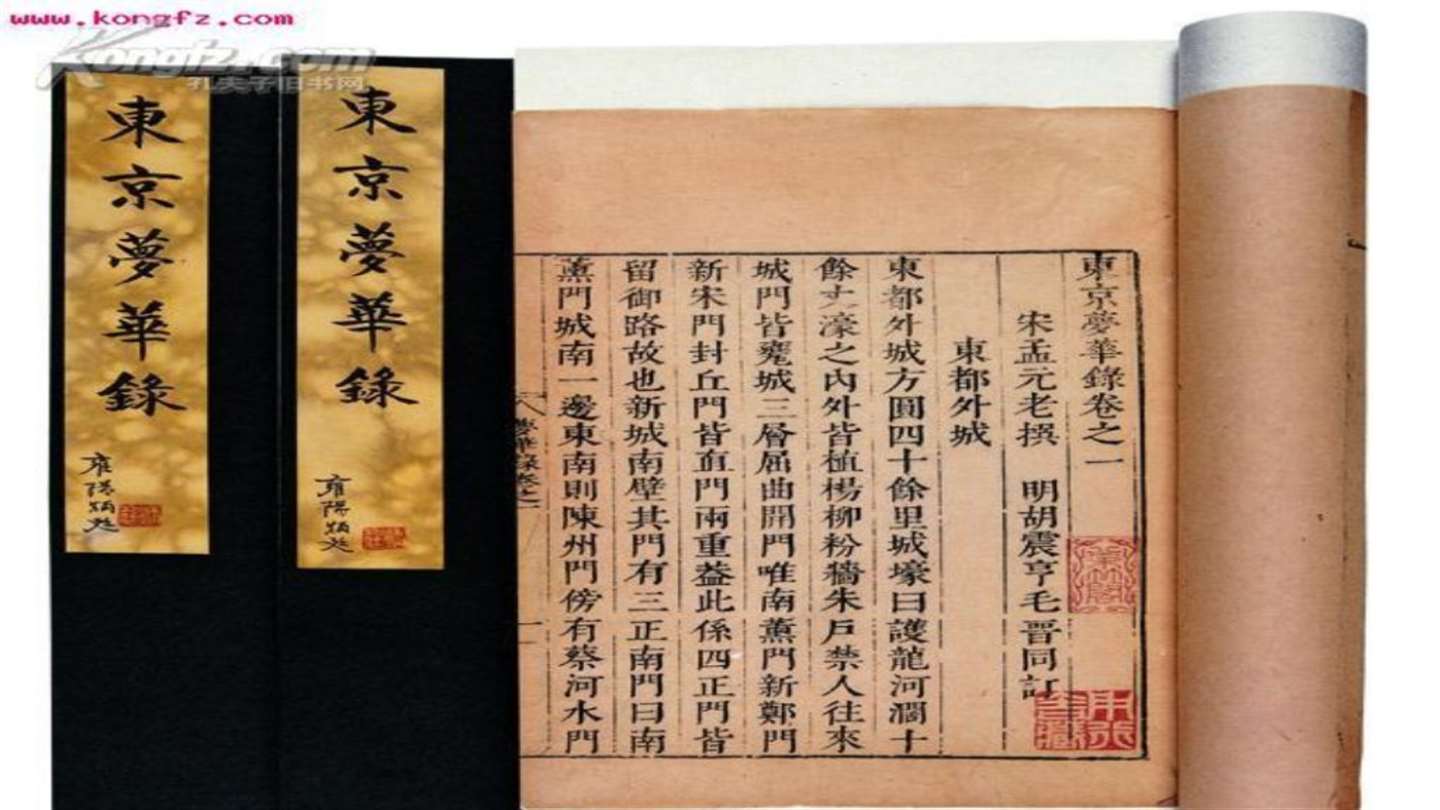 www.kongfz.com
Kongfz.com
孔夫子旧书网
東京夢華錄
東京夢華錄
東京夢華錄卷之一
宋孟元老撰 明胡震亨毛晋同訂
東都外城
東都外城方圓四十餘里城壕曰護龍河濶十
餘丈濠之内外皆植楊柳粉牆朱戶禁人往來
城門皆甕城三層屈曲開門唯南薰門新鄭門
新宋門封丘門皆直門兩重蓋此係四正門皆
留御路故也新城南壁其門有三正南門曰南
薰門城南一邊東南則陳州門傍有蔡河水門
夢華錄卷之一